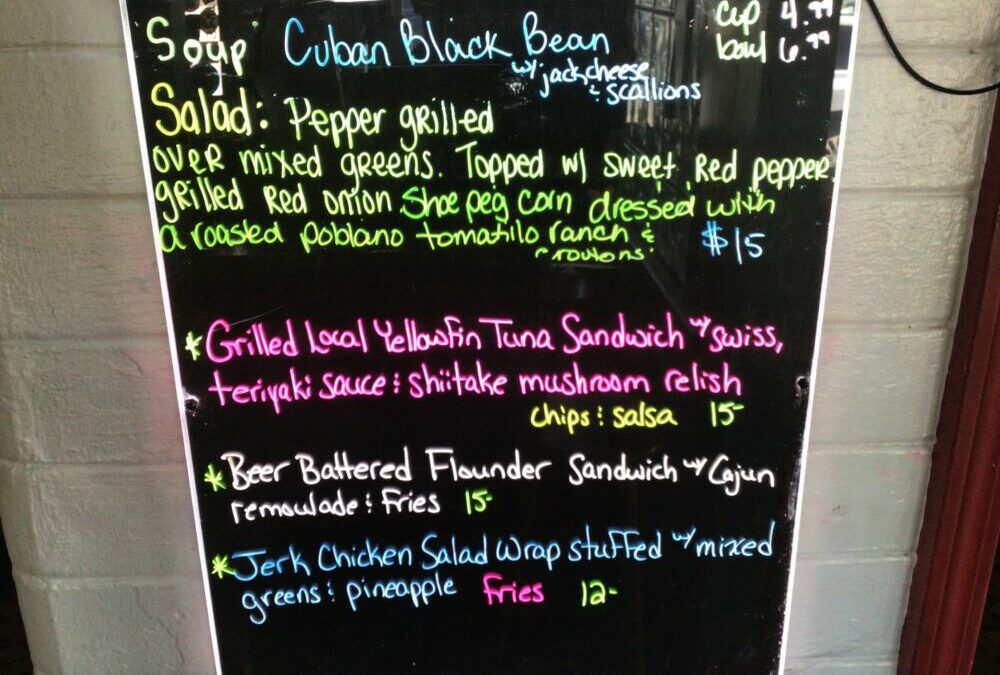 Soup Cuban Black Bean cup 4.99
w/ jack cheese bowl 6.99
& scallions
Salad: Pepper grilled
over mixed greens. Topped w/ sweet Red pepper,
grilled Red onion Shoepeg corn dressed with
a roasted poblano tomatillo ranch &
croutons $15
*Grilled Local Yellowfin Tuna Sandwich w/ swiss,
teriyaki sauce & shiitake mushroom relish
chips & salsa 15-
*Beer Battered Flounder Sandwich w/ Cajun
remoulade & Fries 15-
*Jerk Chicken Salad Wrap stuffed w/ mixed
greens & pineapple Fries 12-